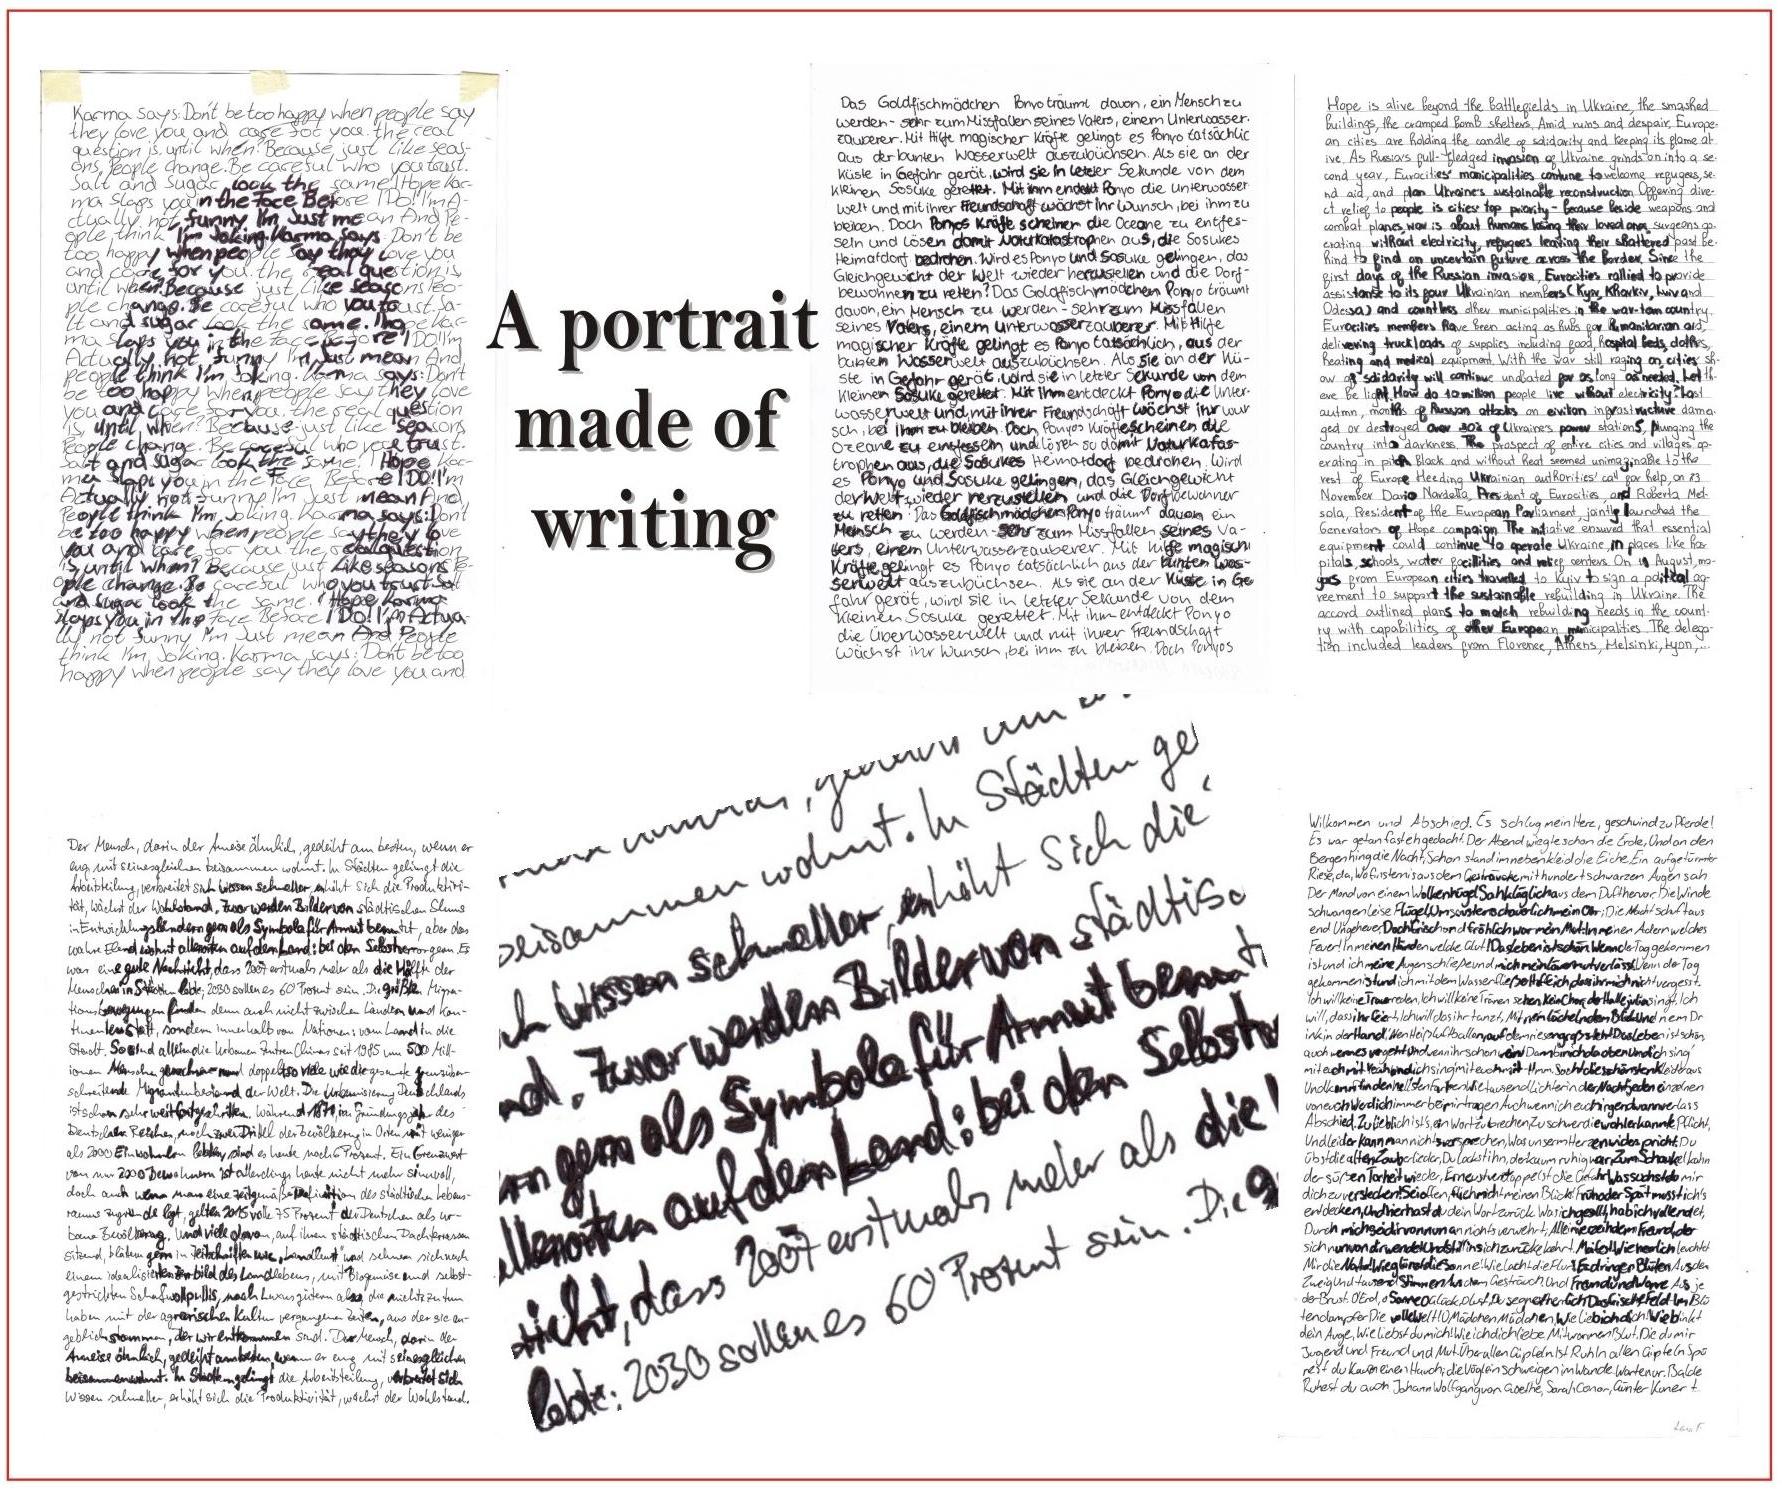 Karma says: Don't be too happy when people say
they love you and care for you. the real
question is, until when? Because just like seas-
ons, People change. Be careful who you trust.
Salt and sugar look the same! Hope Kar-
ma slaps you in the face Before I DO! I'm A-
ctually not funny I'm Just mean And Pe-
ople think I'm Joking. Karma says: Don't be
too happy when people say they love you
and care for you. the real question is
until when? Because just like seasons Peo-
ple change. Be careful who you trust. Sa-
lt and sugar look the same. Hope Kar-
ma slaps you in the face Before I DO! I'm
Actually not funny I'm Just mean And
people think I'm Joking. Karma says: Don't
be too happy when people say they love
you and care for you. the real question
is, until when? Because just like seasons
People change. Be careful who you trust.
Salt and sugar look the same! Hope Kar-
ma slaps you in the face Before I DO! I'm
Actually not funny I'm Just mean And
People think I'm Joking. Karma says: Don't
be too happy when people say they love
you and care for you the real question
is until when? Because just Like seasons Pe-
ople change. Be careful who you trust Salt
and sugar look the same! Hope Karma
slaps you in the face Before I DO! I'm Actua-
lly not funny I'm Just mean And People
think I'm Joking. Karma says: Don't be too
happy when people say they love you and
A portrait
made of
writing
Das Goldfischmädchen Ponyo träumt davon, ein Mensch zu
werden - sehr zum Missfallen seines Vaters, einem Unterwasser.
zauberer. Mit Hilfe magischer Kräfte gelingt es Ponyo tatsächlic
aus der bunten Wasserwelt auszubüchsen. Als sie an der
Küste in Gefahr gerät, wird sie in letzter Sekunde von dem
kleinen Sosuke gerettet. Mit ihm endeckt Ponyo die Unterwasser
welt und mit ihrer Freundschaft wächst ihr Wunsch, bei ihm zu
beiben. Doch Ponyos Kräfte scheinen die Oceane zu entfes-
seln und lösen damit Naturkatastrophen aus, die Sosukes
Heimatdorf bedrohen. Wird es Ponyo und Sosuke gelingen, das
Gleichgewicht der Welt wieder herzustellen und die Dorf-
bewohner zu retten? Das Goldfischmädchen Ponyo träumt
davon, ein Mensch zu werden - sehr zum Missfallen
seines Vaters, einem Unterwasserzauberer. Mit Hilfe
magischer Kräfte gelingt es Ponyo tatsächlich, aus der
bunten Wasserwelt auszubüchsen. Als sie an der Kü-
ste in Gefahr gerät, wird sie in letzter Sekunde von dem
kleinen Sosuke gerettet. Mit ihm entdeckt Ponyo die Unter-
wasserwelt und mit ihrer Freundschaft wächst ihr wun
sch, bei ihm zu bleiben. Doch Ponyos Kräfte scheinen die
Ozeane zu entfesseln und lösen so damit Naturkatas-
trophen aus, die Sosukes Heimatdorf bedrohen. Wird
es Ponyo und Sosuke gelingen, das Gleichgewicht
der Welt wieder herzustellen und die Dorfbewohner
zu retten? Das Goldfischmädchen Ponyo träumt davon ein
Mensch zu werden - sehr zum Missfallen seines Va-
ters, einem Unterwasserzauberer. Mit Hilfe magisch
Kräfte gelingt es Ponyo tatsächlich aus der bunten Was-
serwelt auszubüchsen. Als sie an der Küste in Ge
fahr gerät, wird sie in letzter Sekunde von dem
kleinen Sosuke gerettet. Mit ihm entdeckt Ponyo
die Überwasserwelt und mit ihrer Freundschaft
wächst ihr Wunsch, bei ihm zu bleiben. Doch Ponyos
Hope is alive beyond the battlefields in Ukraine, the smashed
buildings, the cramped bomb shelters. Amid ruins and despair, Europe-
an cities are holding the candle of solidarity and keeping its flame al-
ive. As Russia's full-fledged invasion of Ukraine grinds on into a se-
cond year, Eurocities' municipalities contune to welcome refugees, se-
nd aid, and plan Ukraine's sustainable reconstruction Offering dire-
ct relief to people is cities' top priority - because beside weapons and
combat planes, war is about humans losing their loved ones, surgeons op-
erating without electricity, refugees leaving their shattered past be-
hind to find an uncertain future across the border. Since the
first days of the Russian invasion, Eurocities rallied to provide
assistance to its four Ukrainian members (Kyiv, Kharkiv, Lviv and
Odessa) and countless other municipalities in the war-torn country.
Eurocities members have been acting as hubs for humanitarian aid,
delivering truckloads of supplies including food, hospital beds, clothes,
heating and medical equipment. With the war still raging on, cities' sh-
ow of solidarity will continue unabated for as long as needed. Let th-
eve be light How do 10 million people live without electricity? Last
autmn, months of Russian attacks on civilian infrastructure dama-
ged or destroyed over 30% of Ukraine's power stations, plunging the
country into darkness. The prospect of entire cities and villages op-
erating in pitch black and without heat seemed unimaginable to the
rest of Europe Heeding Ukrainian authorities' call for help, on 23
November Dario Nardella, President of Eurocities, and Roberta Met-
sola, President of the European Parliament, jointly launched the
Generators of Hope campaign The initiative ensured that essential
equipment could continue to operate Ukraine, in places like hos-
pitals, schools, water facilities and relief centers. On 19 August, ma-
yors from European cities travelled to Kyiv to sign a political ag-
reement to support the sustainable rebuilding in Ukraine. The
accord outlined plans to match rebuilding needs in the count-
ry with capabilities of other European municipalities The delega-
tion included leaders from Florence, Athens, Helsinki, Lyon,...
Der Mensch, darin der Ameise ähnlich, gedeiht am besten, wenn er
eng mit seinesgleichen beisammen wohnt. In Städten gelingt die
Arbeitsteilung, verbreitet sich Wissen schneller, erhöht sich die Produktivi-
tät, wächst der Wohlstand. Zwar werden Bilder von städtischen Slums
in Entwicklungsländern gern als Symbole für Armut benutzt, aber das
wahre Elend wohnt allerorten auf dem Land: bei den Selbstversorgern Es
war eine gute Nachricht, dass 2007 erstmals mehr als die Hälfte der
Menschen in Städten lebte; 2030 sollen es 60 Prozent sein. Die größten Migra-
tionsbewegungen finden denn auch nicht zwischen Ländern und Kon-
tinenten statt, sondern innerhalb von Nationen: vom Land in die
Stadt. So sind allein die urbanen Zentren Chinas seit 1985 um 500 Mill-
ionen Menschen gewachsen - rund doppelt so viele wie die gesamte grenzüber-
schreitende Migrantenbestand der Welt. Die Urbanisierung Deutschlands
ist schon sehr weit fortgeschritten. Während 1871, im Gründungsjahr des
Deutschen Reiches, noch zwei Drittel der Bevölkerung in Orten mit weniger
als 2000 Einwohnern lebten, sind es heute noch 6 Prozent. Ein Grenzwert
von nur 2000 Bewohnern ist allerdings heute nicht mehr sinnvoll,
doch auch wenn man eine zeitgemäße Definition des städtischen Lebens-
raums zugrunde legt, gelten 2015 volle 75 Prozent der Deutschen als ur-
bane Bevölkerung. Und viele davon, auf ihren städtischen Dachterrassen
sitzend, blättern gern in Zeitschriften wie „Landlust" und sehnen sich nach
einem idealisierten Zerrbild des Landlebens, mit Biogemüse und selbst-
gestrickten Schafwollpullis, nach Luxusgütern also, die nichts zu tun
haben mit der agrarischen Kultur vergangener Zeiten, aus der sie an-
geblich stammen, der wir entkommen sind. Der Mensch, darin der
Ameise ähnlich, gedeiht am besten, wenn er eng mit seinesgleichen
beisammen wohnt. In Städten gelingt die Arbeitsteilung, verbreitet sich
Wissen schneller, erhöht sich die Produktivität, wächst der Wohlstand.
beisammen wohnt. In Städten ge
ch Wissen schneller, erhöht sich die
nd. Zwar werden Bilder von städtisc
rn gern als Symbole für Armut benut
allerorten auf dem Land: bei den Selbstv
richt, dass 2007 erstmals mehr als die
lebte; 2030 sollen es 60 Prozent sein. Die g
Willkommen und Abschied. Es schlug mein Herz, geschwind zu Pferde!
Es war getan fast eh gedacht. Der Abend wiegte schon die Erde, Und an den
Bergen hing die Nacht, Schon stand im nebenkleid die Eiche. Ein aufgetürmter
Riese, da, Wo Finsternis aus dem Gesträuche mit hundert schwarzen Augen sah
Der Mond von einem Wolkenhügel Sah kläglich aus dem Duft hervor. Die Winde
schwangen leise Flügel, Umsausten schauerlich mein Ohr; Die Nacht schuf taus
end Ungeheuer, Doch frisch und fröhlich war mein Mut: In meinen Adern welches
Feuer! In meinen Herzen welche Glut! Das leben ist schön. Wenn der Tag gekommen
ist und ich meine Augen schließe und mich mein Löwenmut verlässt Wenn der Tag
gekommen ist und ich mit dem Wasser fließe Hoffe ich, dass ihr mich nicht vergesst.
Ich will keine Trauerreden, Ich will keine Tränen sehen kein Chor, der Halleluja singt. Ich
will, dass ihr feiert Ich will, dass ihr tanzt. Mit nem lächelnden Blick Und nem Dr
ink in der Hand. Nen Heißluftballon, auf dem riesengroß steht Das leben ist schön,
auch wenn es vergeht Und wenn ihr schon weint Dann bin ich da oben Und ich sing'
mit euch mit Yeah, und ich sing mit euch mit Hmm. Sucht die schönsten Kleider aus
Abschied. Zu lieblich ist's, ein Wort zu brechen Zu schwer die wohlerkannte Pflicht,
Und leider kann man nichts versprechen, Was unserm Herzen widerspricht. Du
übst die alten Zauberlieder, Du lockst ihn, der kaum ruhig war, Zum Schaukelkahn
der süßen Torheit wieder, Erneust verdoppelst die Gefahr. Was suchst du mir
dich zu verstecken! Sei offen, flieh nicht meinen Blick! Früh oder Spät musst ich's
entdecken, Und hier hast du dein Wort zurück. Was ich gesollt, hab ich vollendet,
Mir die Natur Wie glänzt die Sonne! Wie lacht die Flur! Es dringen Blüten Aus dem
Zweig Und tausend Stimmen Aus dem Gesträuch Und Freund und Wonne Aus je
der Brust. O Erd, o Sonne O Glück, o Lust, Du segnest herrlich Das frische Feld Im Blü
tendampfe Die volle Welt! O Mädchen Mädchen, Wie lieb ich dich! Wie blinkt
dein Auge, Wie liebst du mich! Wie ich dich liebe Mit warmen Blut. Die du mir
Jugend und Freund und Mut Über allen Gipfeln Ist Ruh In allen Gipfeln Spü
rest du Kaum einen Hauch; die Vöglein schweigen im Walde Warte nur. Balde
Ruhest du auch Johann Wolfgang von Goethe, Sarah Connor, Günter Kunert